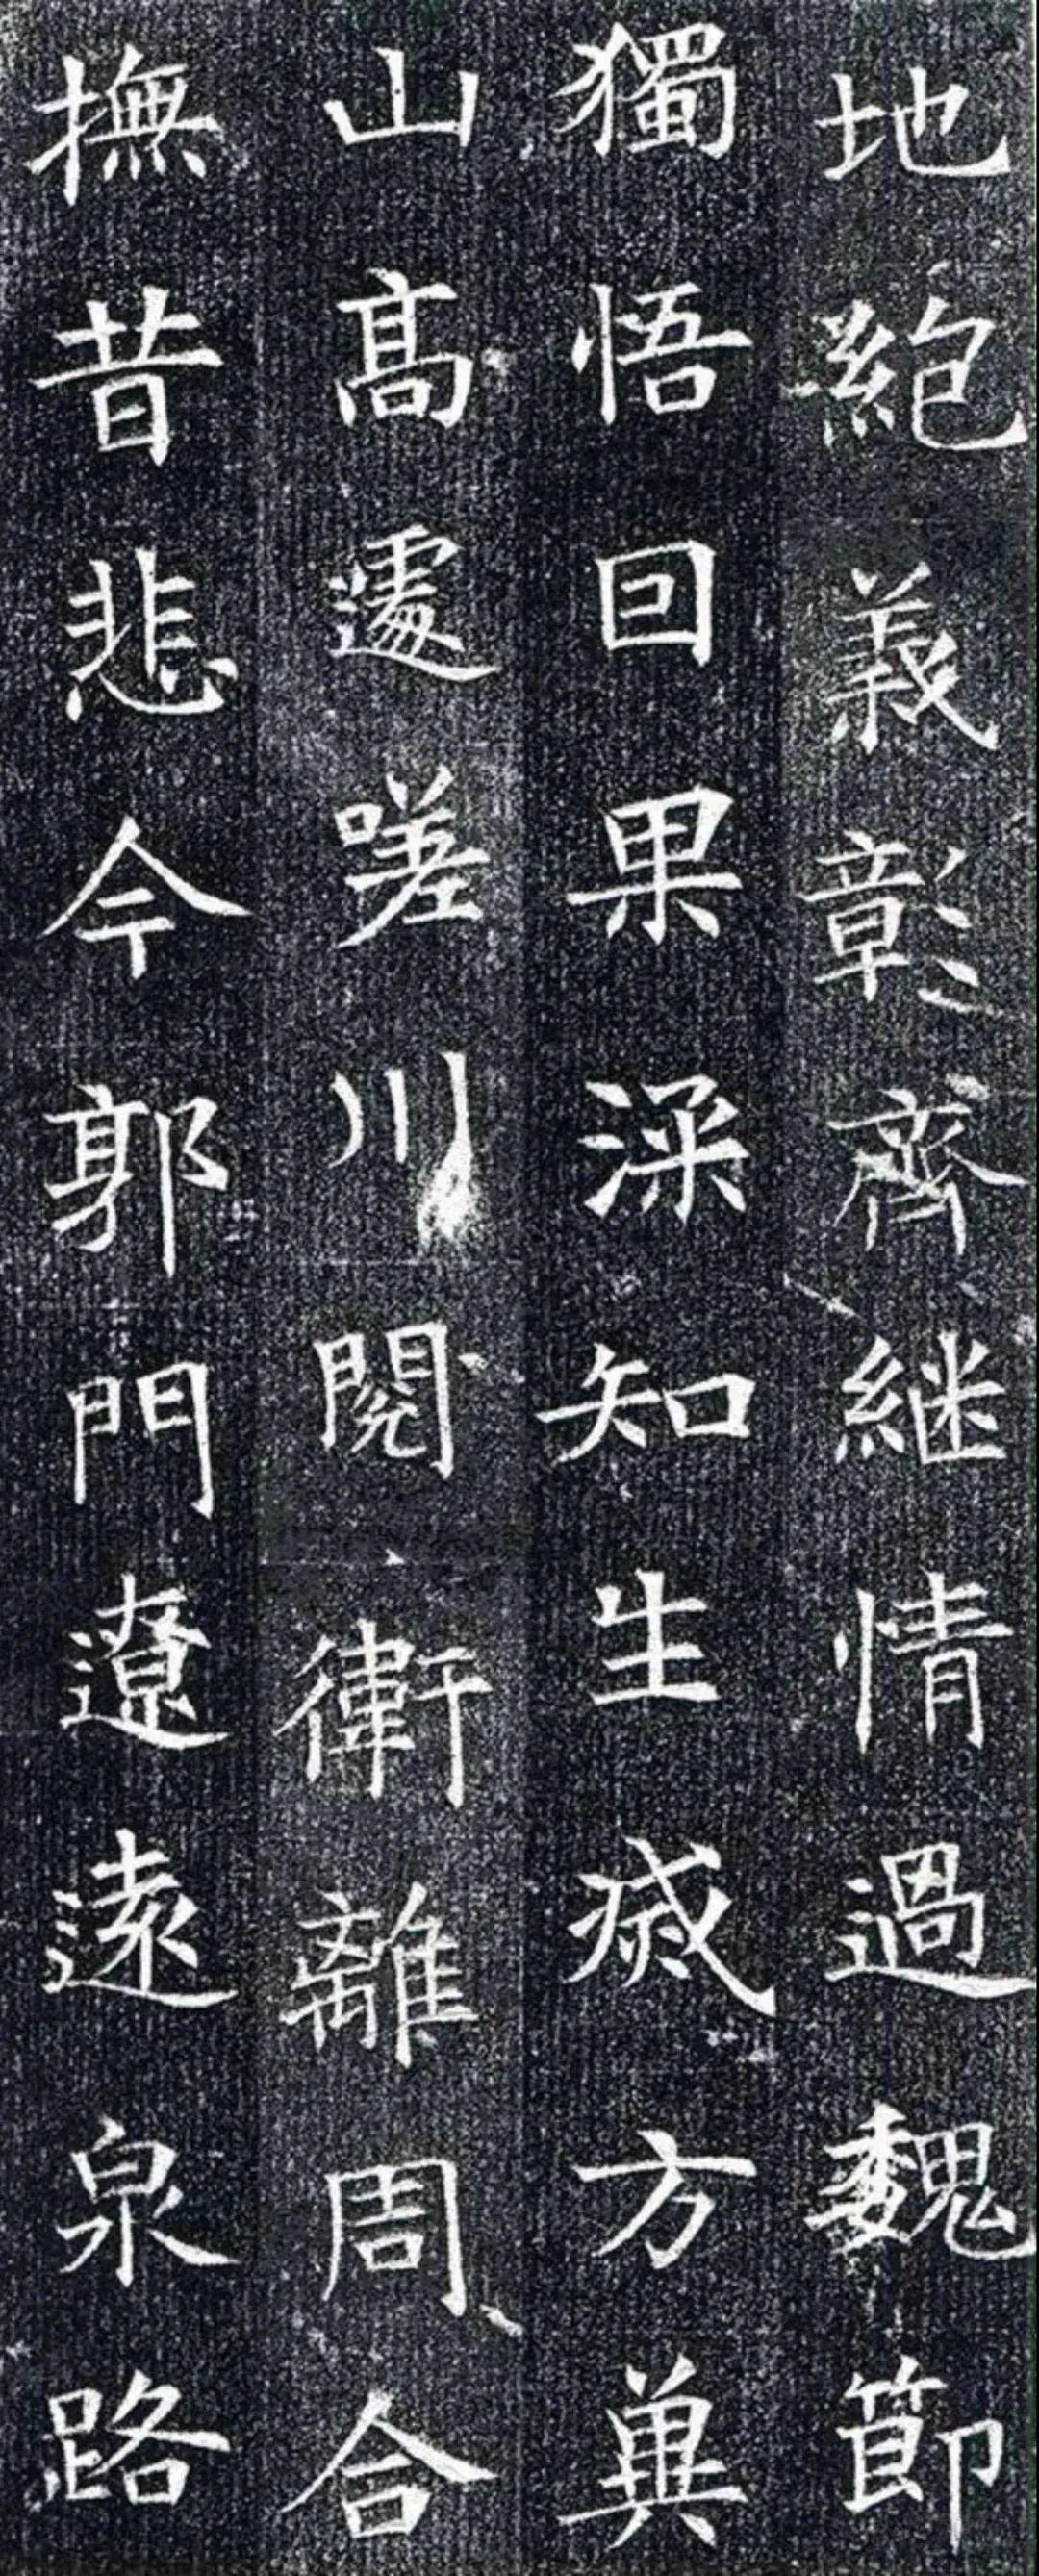 地絶義彰齊継情過魏節
獨悟回果深知生滅方巽
山髙遽嗟川閱衛離周合
撫昔悲今郭門遼遠泉路